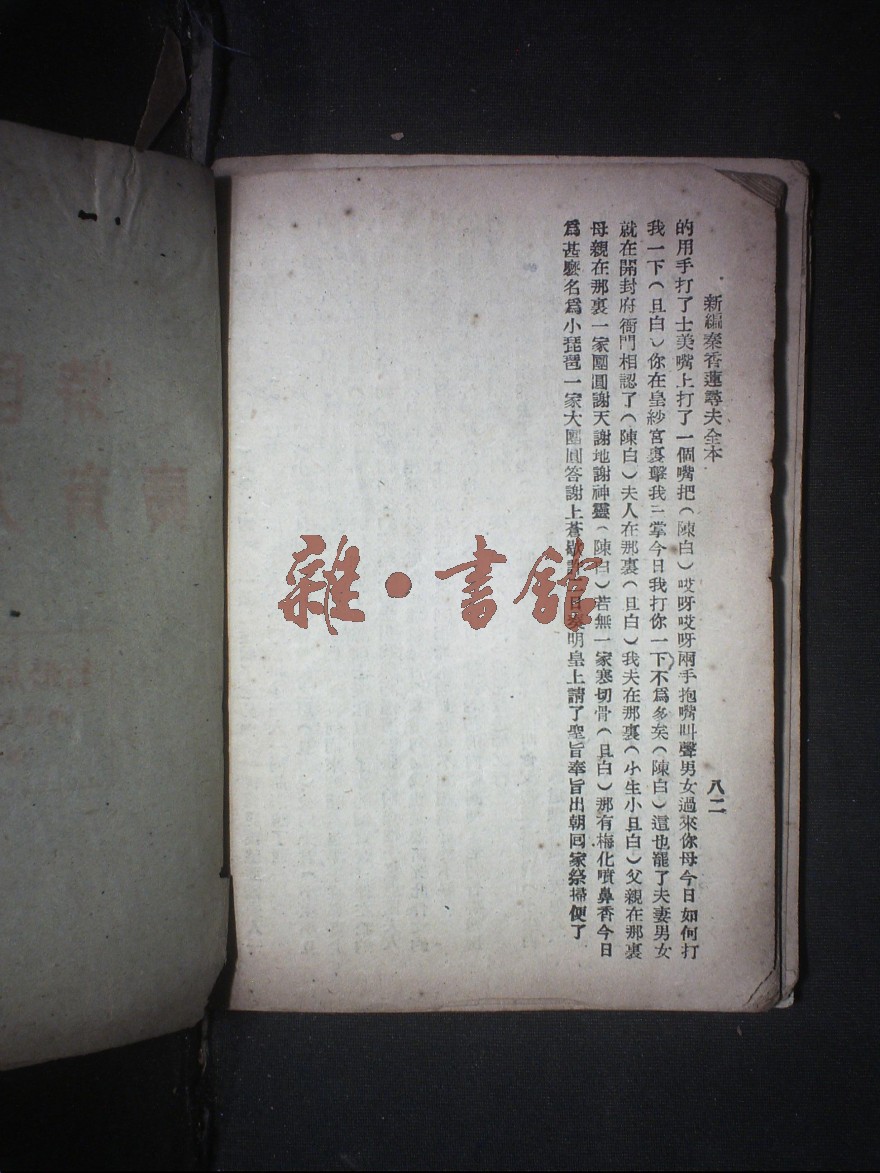 新編秦香蓮尋夫全本
八二
的用手打了士美嘴上打了一個嘴把（陳白）哎呀哎呀兩手抱嘴叫聲男女過來你母今日如何打
我一下（旦白）你在皇紗宮裏擊我三掌今日我打你一下不爲多矣（陳白）這也罷了夫妻男女
就在開封府衙門相認了（陳白）夫人在那裏（旦白）我夫在那裏（小生小旦白）父親在那裏
母親在那裏一家團圓謝天謝地謝神靈（陳白）若無一家寒切骨（旦白）那有梅化噴鼻香今日
爲甚麽名爲小琵琶一家大團圓答謝上蒼明皇上請了聖旨奉旨出朝回家祭掃便了
雜·書館